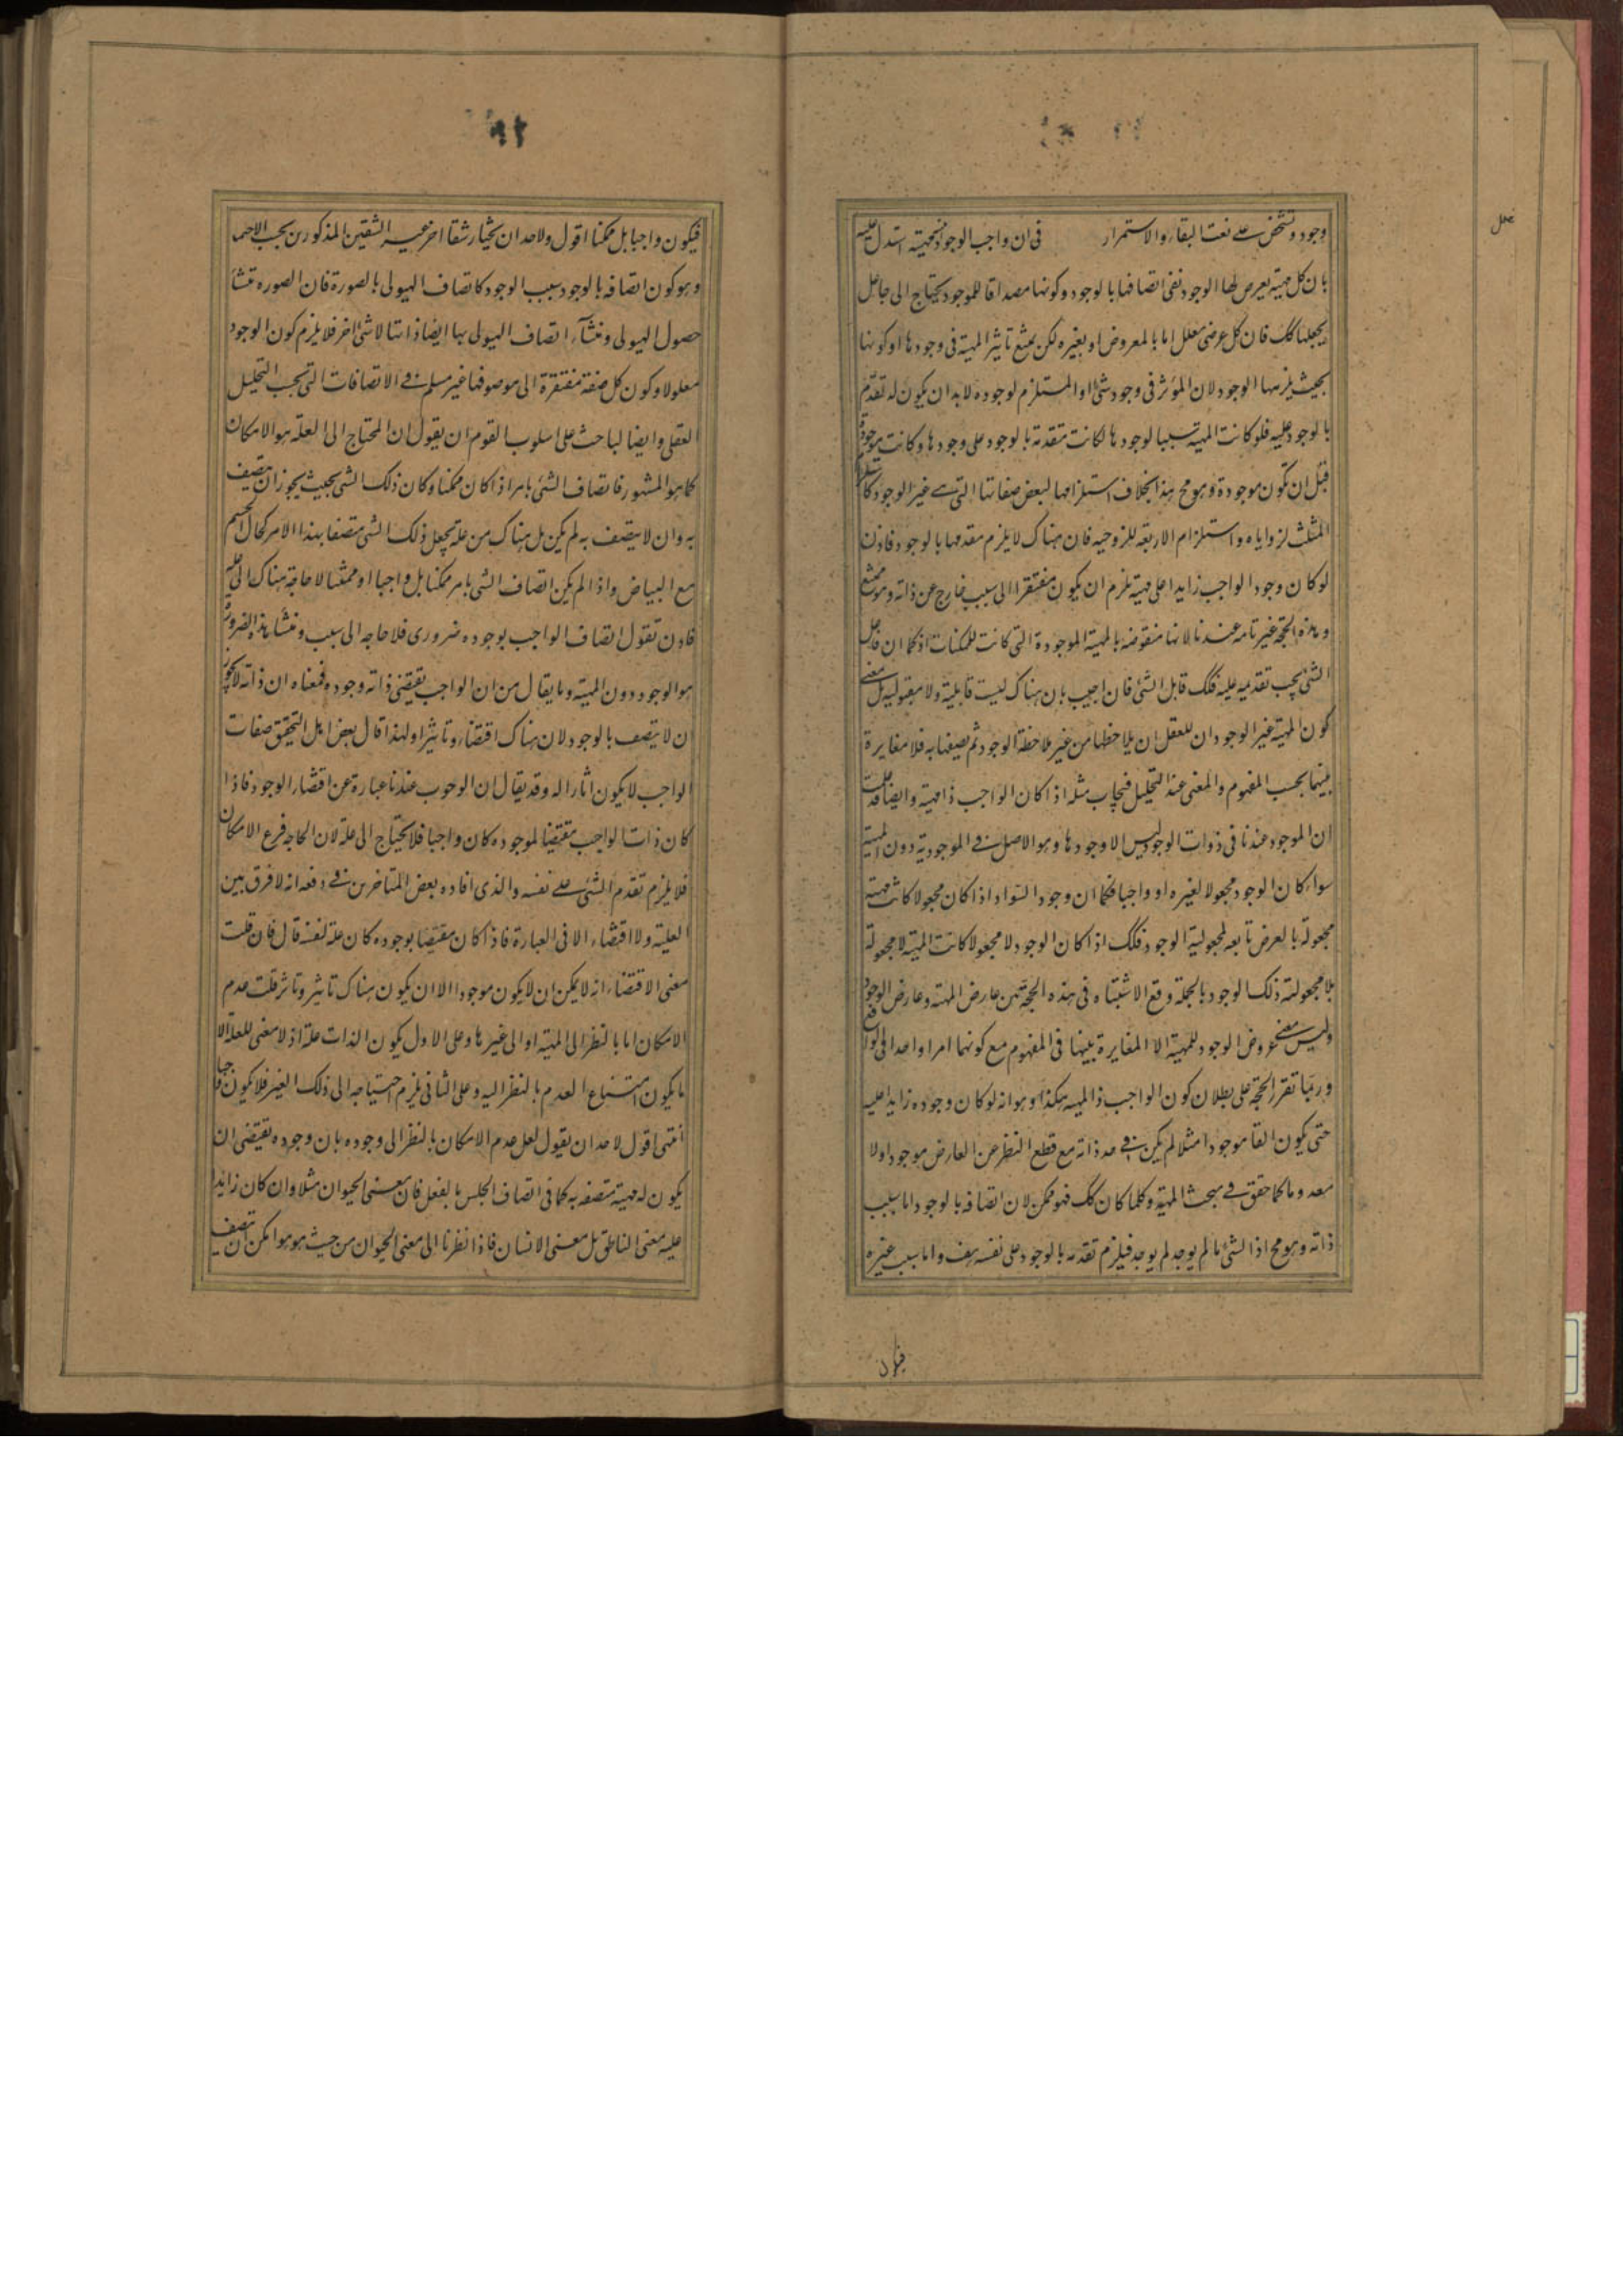 وجود وتشخص على نعت البقاء والاستمرار في ان واجب الوجود انيته مهيته استدل عليه
بان كل مهية يعرض لها الوجود نفى اتصافها بالوجود وكونها مصداقا للموجود يحتاج الى جاعل
يجعلها كك فان كل عرضى معلل اما بالمعروض او بغيره لكن يمتنع تاثير المهية فى وجودها او كونها
بحيث يلزمها الوجود لان المؤثر فى وجود شئ او المستلزم لوجوده لابد ان يكون له تقدم
بالوجود عليه فلو كانت المهية سببا لوجودها لكانت متقدمة بالوجود على وجودها وكانت موجودة
قبل ان تكون موجودة وهو مح هذا بخلاف استلزامها لبعض صفاتها التى هى غير الوجود كاستلزام
المثلث لزواياه واستلزام الاربعه للزوجيه فان هناك لا يلزم تقدمها بالوجود فاذن
لو كان وجود الواجب زايدا على مهيته لزم ان يكون مفتقرا الى سبب خارج عن ذاته وهو ممتنع
وهذه الحجة غير تامه عندنا لانها منقوضه بالمهية الموجودة التى كانت للممكنات اذ كما ان فاعل
الشئ يجب تقدمه عليه فكك قابل الشئ فان اجيب بان هناك ليست قابلية ولا مقبولية بل معنى
كون المهية غير الوجود ان للعقل ان يلاحظها من غير ملاحظة الوجود ثم يصفها به فلا مغايرة
بينهما بحسب المفهوم والمعنى عند التحليل فيجاب بمثله اذا كان الواجب ذا مهية وايضا قد علمت
ان الموجود عندنا فى ذوات الوجود ليس الا وجودها وهو الاصل فى الموجودية دون المهية
سواء كان الوجود مجعولا لغيره او واجبا فكما ان وجود السواد اذا كان مجعولا كانت مهيته
مجعولة بالعرض تابعه لمجعولية الوجود فكك اذا كان الوجود لا مجعولا كانت المهية لا مجعولة
بلا مجعولية ذلك الوجود بالجملة وقع الاشتباه فى هذه الحجة بين عارض المهية وعارض الوجود
وليس معنى عروض الوجود للمهية الا المغايرة بينهما فى المفهوم مع كونهما امرا واحدا فى الواقع
وربما تقرر الحجة على بطلان كون الواجب ذا المهية هكذا وهو انه لو كان وجوده زايدا عليه
حتى يكون الفا موجودا مثلا لم يكن فى حد ذاته مع قطع النظر عن العارض موجودا ولا
معدوما كما حقق فى مبحث المهية وكلما كان كك فهو ممكن لان اتصافه بالوجود اما بسبب
ذاته وهو مح اذ الشئ ما لم يوجد لم يوجد فيلزم تقدمه بالوجود على نفسه هف واما بسبب غيره
فيكون
فيكون واجبا بل ممكنا اقول ولاحد ان يختار شقا اخر غير الشقين المذكورين بحسب الاحتما
وهو كون اتصافه بالوجود بسبب الوجود كاتصاف الهيولى بالصورة فان الصوره منشأ
حصول الهيولى ومنشأ اتصاف الهيولى بها ايضا ذاتها لا شئ اخر فلا يلزم كون الوجود
معلولا وكون كل صفة مفتقرة الى موصوفها غير مسلم فى الاتصافات التى بحسب التحليل
العقلى وايضا لباحث على اسلوب القوم ان يقول ان المحتاج الى العلة هو الامكان
كما هو المشهور فاتصاف الشئ بامر اذا كان ممكنا وكان ذلك الشئ بحيث يجوز ان يتصف
به وان لا يتصف به لم يكن بل هناك من علة يجعل ذلك الشئ متصفا بهذا الامر كحال الجسم
مع البياض واذا لم يكن اتصاف الشى بامر ممكنا بل واجبا او ممتنعا لا حاجة هناك الى علة
فاذن نقول اتصاف الواجب بوجوده ضرورى فلا حاجه الى سبب ومنشأ هذه الضرورة
هو الوجود دون المهية وما يقال من ان الواجب يقتضى ذاته وجوده فمعناه ان ذاته لا يجوز
ان لا يتصف بالوجود لان هناك اقتضاء وتاثيرا ولهذا قال بعض اهل التحقيق صفات
الواجب لا يكون اثارا له وقد يقال ان الوجوب عندنا عبارة عن اقتضاء الوجود فاذا
كان ذات الواجب مقتضيا لموجوده كان واجبا فلا يحتاج الى علة لان الحاجه فرع الامكان
فلا يلزم تقدم الشئ على نفسه والذى افاده بعض المتاخرين فى دفعه انه لا فرق بين
العليته ولا اقتضاء الا فى العبارة فاذا كان مقتضيا بوجوده كان علة لنفسه قال فان قلت
معنى الاقتضاء انه لا يمكن ان لا يكون موجودا الا ان يكون هناك تاثير وتاثر قلت عدم
الامكان اما بالنظر الى المهية او الى غيرها وعلى الاول يكون الذات علة اذ لا معنى للعلة الا
ما يكون امتناع العدم بالنظر اليه وعلى الثانى يلزم احتياجه الى ذلك الغير فلا يكون واجبا
انتهى اقول لاحد ان يقول لعل عدم الامكان بالنظر الى وجوده بان وجوده يقتضى ان
يكون له مهية متصفه به كما فى اتصاف الجنس بالفصل فان معنى الحيوان مثلا وان كان زايدا
عليه معنى الناطق بل معنى الانسان فاذا نظرنا الى معنى الحيوان من حيث هو هو امكن ان يتصف